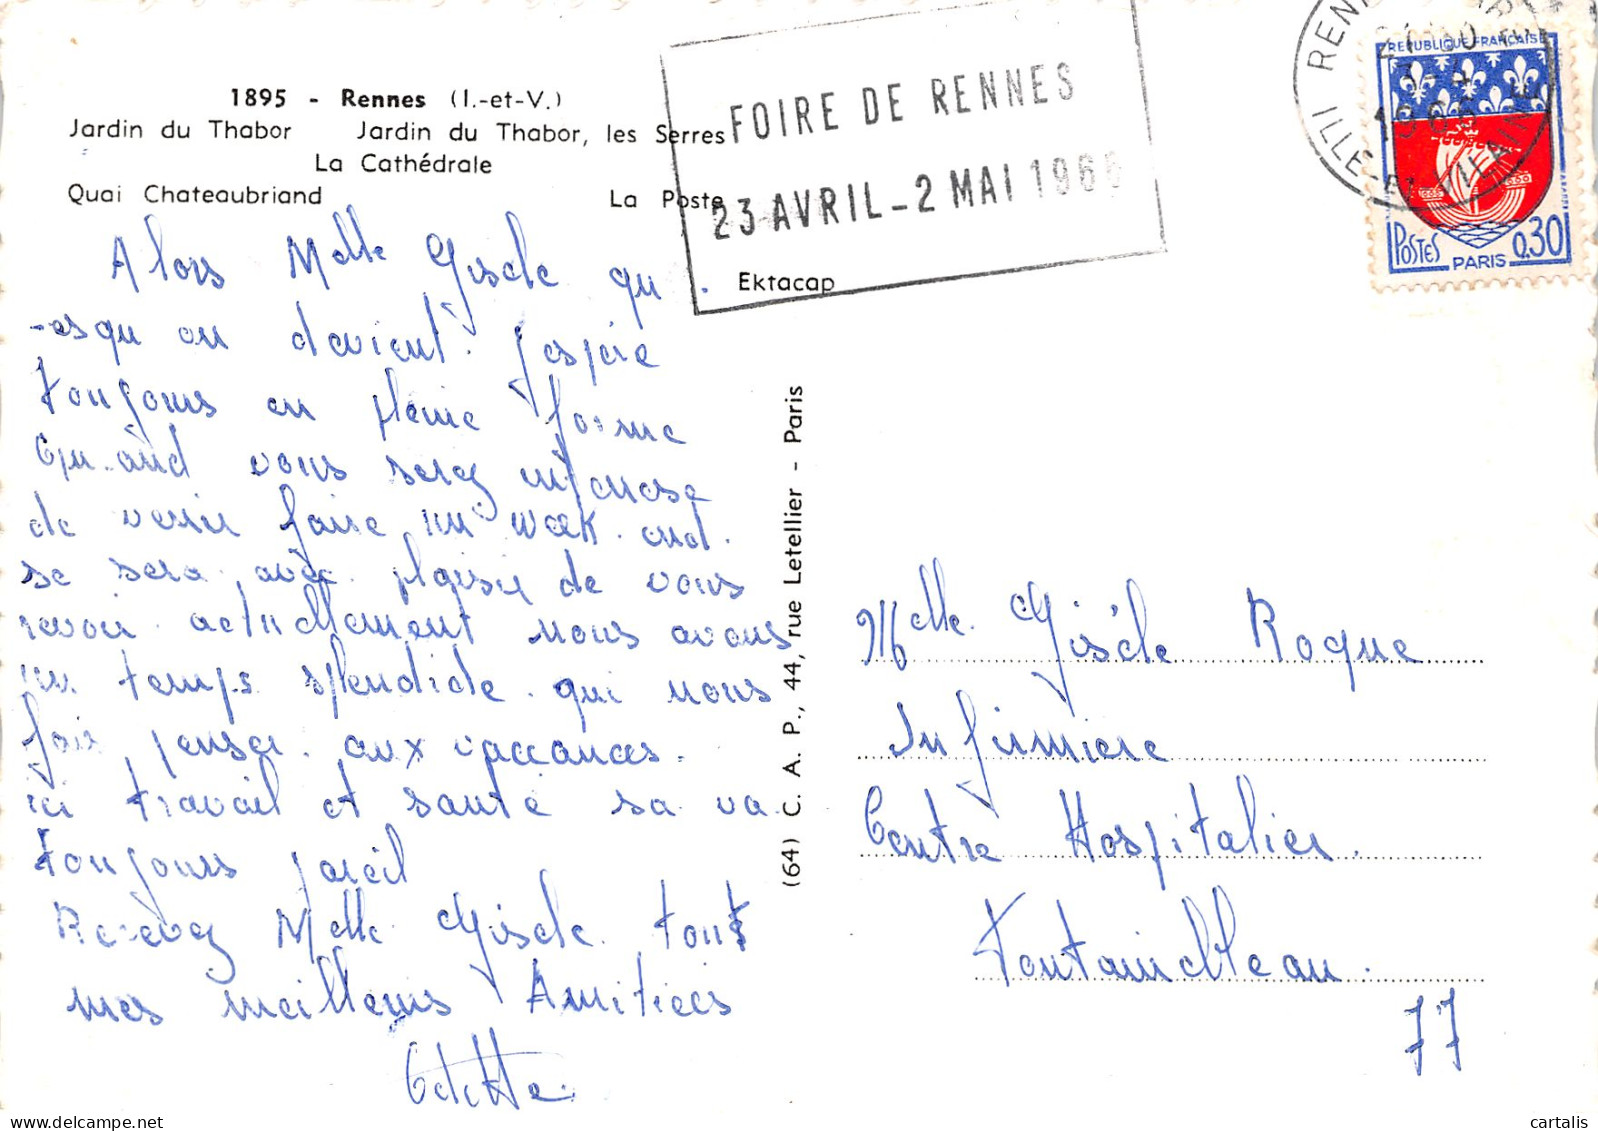 1895 - Rennes (I.-et-V.)
Jardin du Thabor Jardin du Thabor, les Serres
La Cathédrale
Quai Chateaubriand La Poste
Ektacap
FOIRE DE RENNES
23 AVRIL - 2 MAI 1966
ILLE-ET-VILAINE
1966
REPUBLIQUE FRANÇAISE
POSTES PARIS 0,30
Alors Melle Gisele qu
-esqu on devient. J'espère
toujours en pleine forme
Qu.and vous serez
de venir faire un week.end.
se sera avec plaisir de vous
revoir. actuellement nous avons
un temps splendide. qui nous
fair penser. aux vaccances.
ici travail et santé sa va
toujours pareil
Recevez Melle Gisele. tout
mes meilleurs Amitiées
Odette.
(64) C. A. P., 44, rue Letellier - Paris
Melle. Gisèle Roque
Infirmiere
Centre Hospitalier.
Fontainebleau.
77
cartalis